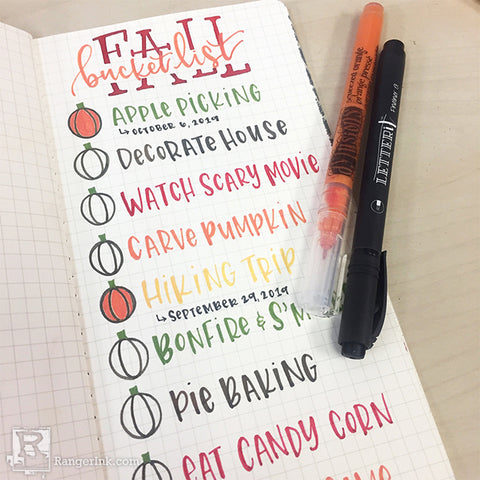 FALL
bucket list
APPLE PICKING
↳ OCTOBER 6, 2019
DECORATE HOUSE
WATCH SCARY MOVIE
CARVE PUMPKIN
HIKING TRIP
↳ SEPTEMBER 29, 2019
BONFIRE & S'M
PIE BAKING
EAT CANDY CORN
LETTER it
RangerInk.com